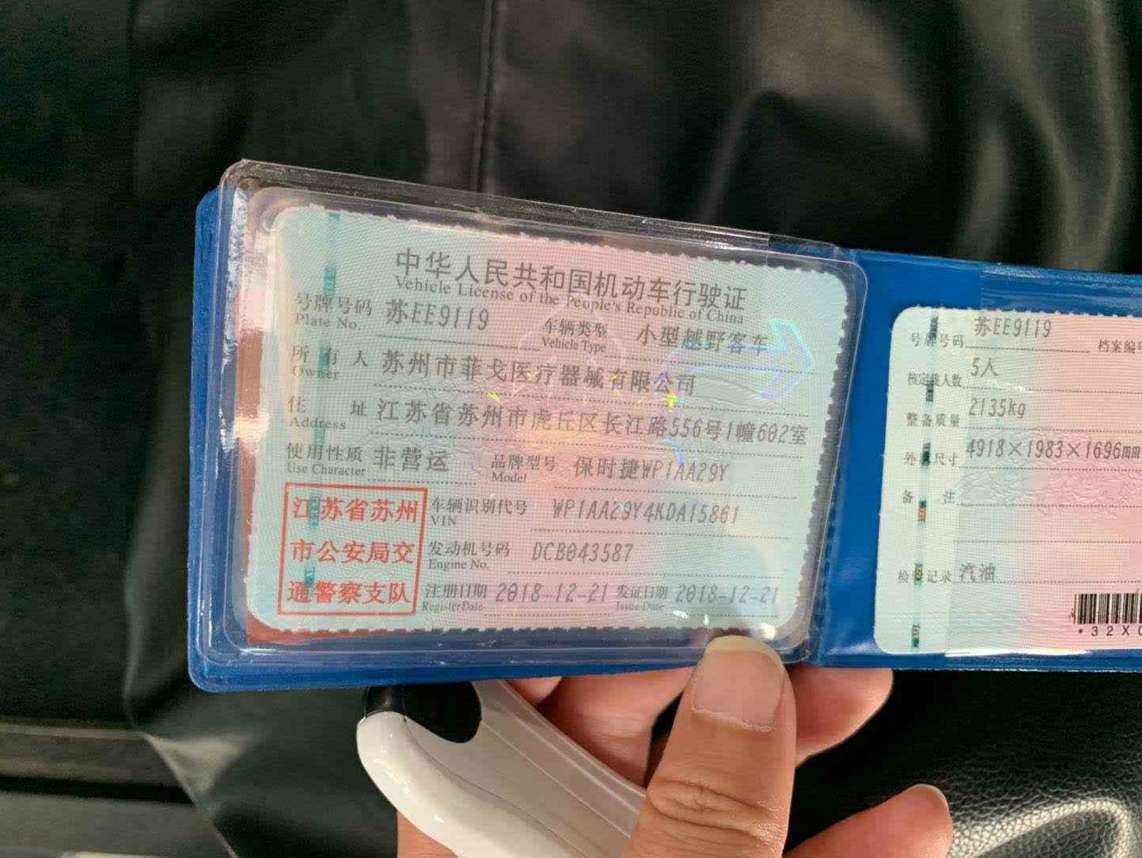 中华人民共和国机动车行驶证
Vehicle License of the People's Republic of China
号牌号码 苏EE9119 车辆类型 小型越野客车
Plate No. Vehicle Type
所有人 苏州市菲戈医疗器械有限公司
Owner
住址 江苏省苏州市虎丘区长江路556号1幢602室
Address
使用性质 非营运 品牌型号 保时捷WP1AA29Y
Use Character Model
江苏省苏州
市公安局交
通警察支队
车辆识别代号 WP1AA29Y4KDA15861
VIN
发动机号码 DCB043587
Engine No.
注册日期 2018-12-21 发证日期 2018-12-21
Register Date Issue Date
号牌号码 苏EE9119 档案编号
核定载人数 5人
整备质量 2135kg
外廓尺寸 4918×1983×1696mm
备注
检验记录 汽油
*32X